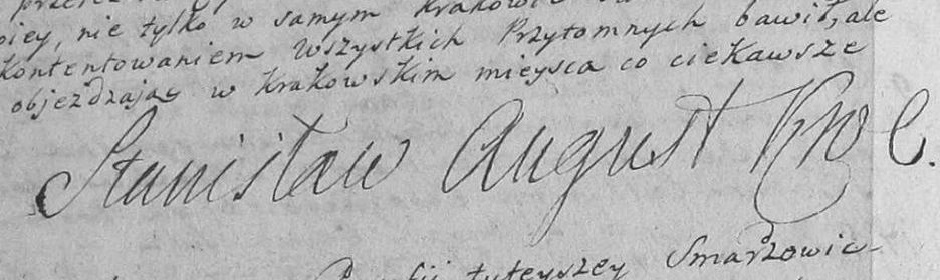 oiey, nie tylko w samym Krakowie
kontentowaniem Wszystkich Przytomnych bawił, ale
objezdzaiąc w Krakowskim mieysca co ciekawsze
Stanisław August Kró l.
tuteyszey Smarżowic